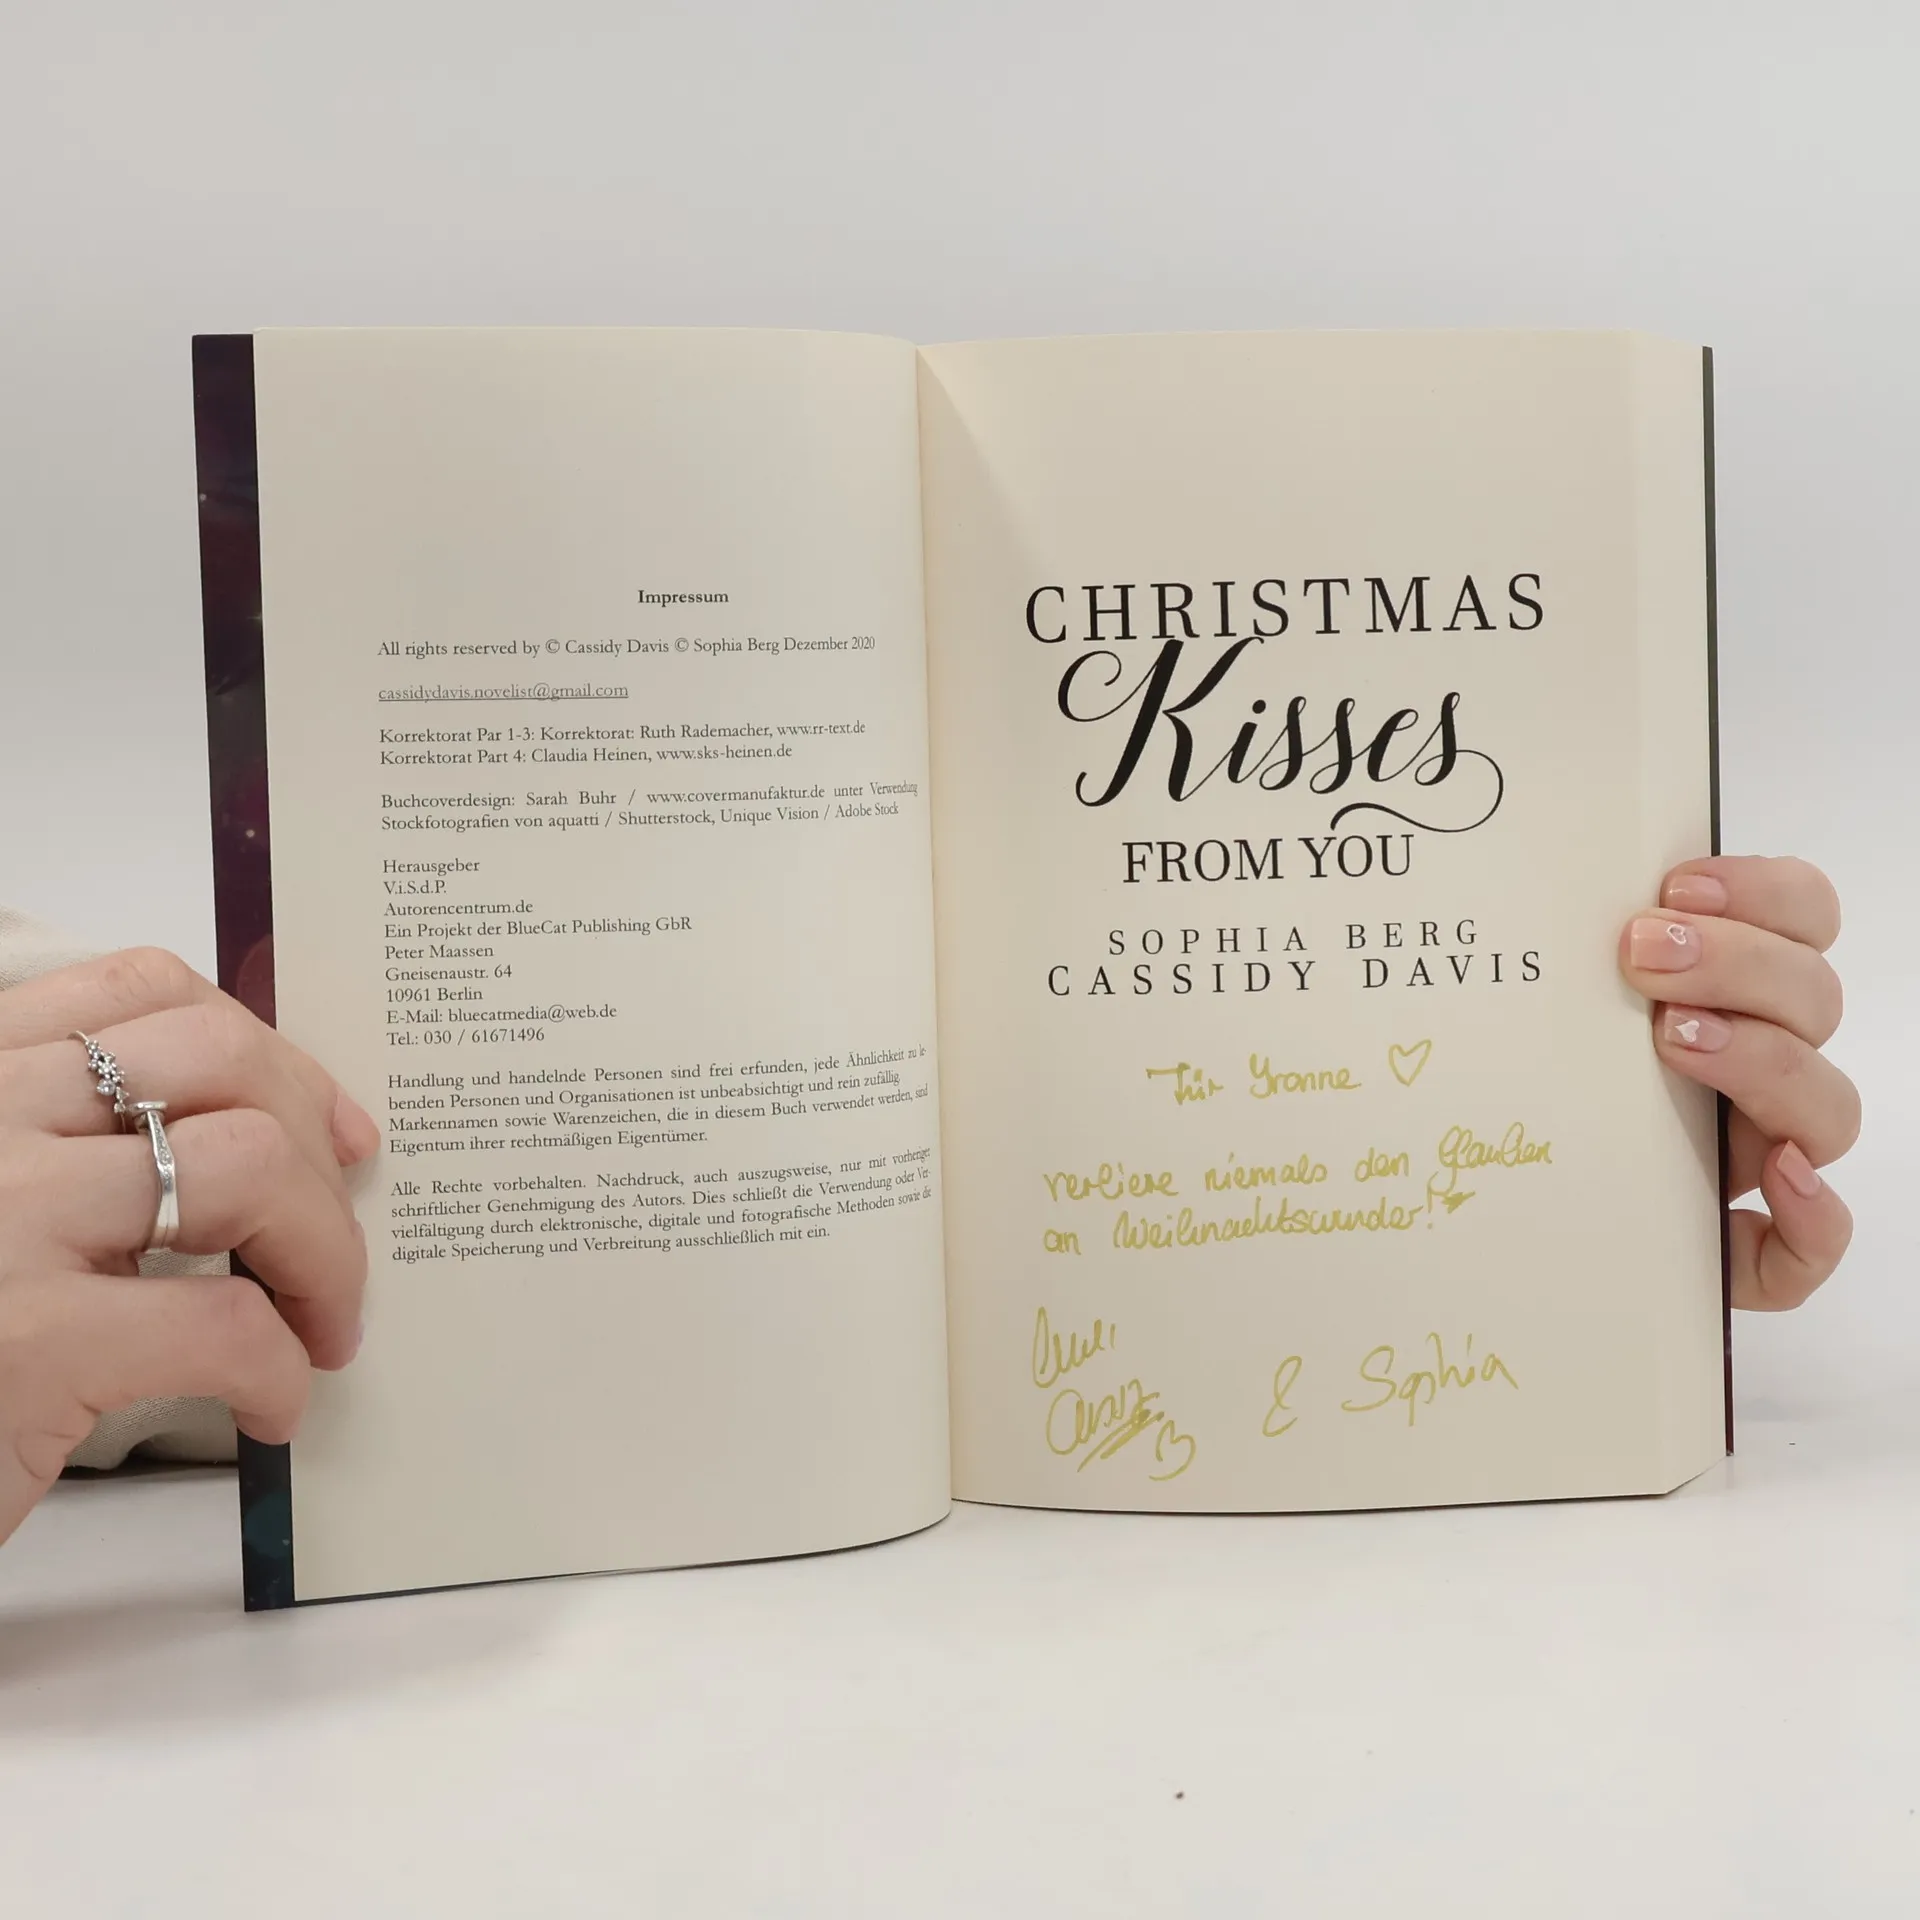 Impressum
All rights reserved by © Cassidy Davis © Sophia Berg Dezember 2020
cassidydavis.novelist@gmail.com
Korrektorat Par 1-3: Korrektorat: Ruth Rademacher, www.rr-text.de
Korrektorat Part 4: Claudia Heinen, www.sks-heinen.de
Buchcoverdesign: Sarah Buhr / www.covermanufaktur.de unter Verwendung
Stockfotografien von aquatti / Shutterstock, Unique Vision / Adobe Stock
Herausgeber
V.i.S.d.P.
Autorencentrum.de
Ein Projekt der BlueCat Publishing GbR
Peter Maassen
Gneisenaustr. 64
10961 Berlin
E-Mail: bluecatmedia@web.de
Tel.: 030 / 61671496
Handlung und handelnde Personen sind frei erfunden, jede Ähnlichkeit zu le-
benden Personen und Organisationen ist unbeabsichtigt und rein zufällig.
Markennamen sowie Warenzeichen, die in diesem Buch verwendet werden, sind
Eigentum ihrer rechtmäßigen Eigentümer.
Alle Rechte vorbehalten. Nachdruck, auch auszugsweise, nur mit vorheriger
schriftlicher Genehmigung des Autors. Dies schließt die Verwendung oder Ver-
vielfältigung durch elektronische, digitale und fotografische Methoden sowie die
digitale Speicherung und Verbreitung ausschließlich mit ein.
CHRISTMAS
Kisses
FROM YOU
SOPHIA BERG
CASSIDY DAVIS
Für Yvonne ♡
verliere niemals den Glauben
an Weihnachtswunder!
& Sophia